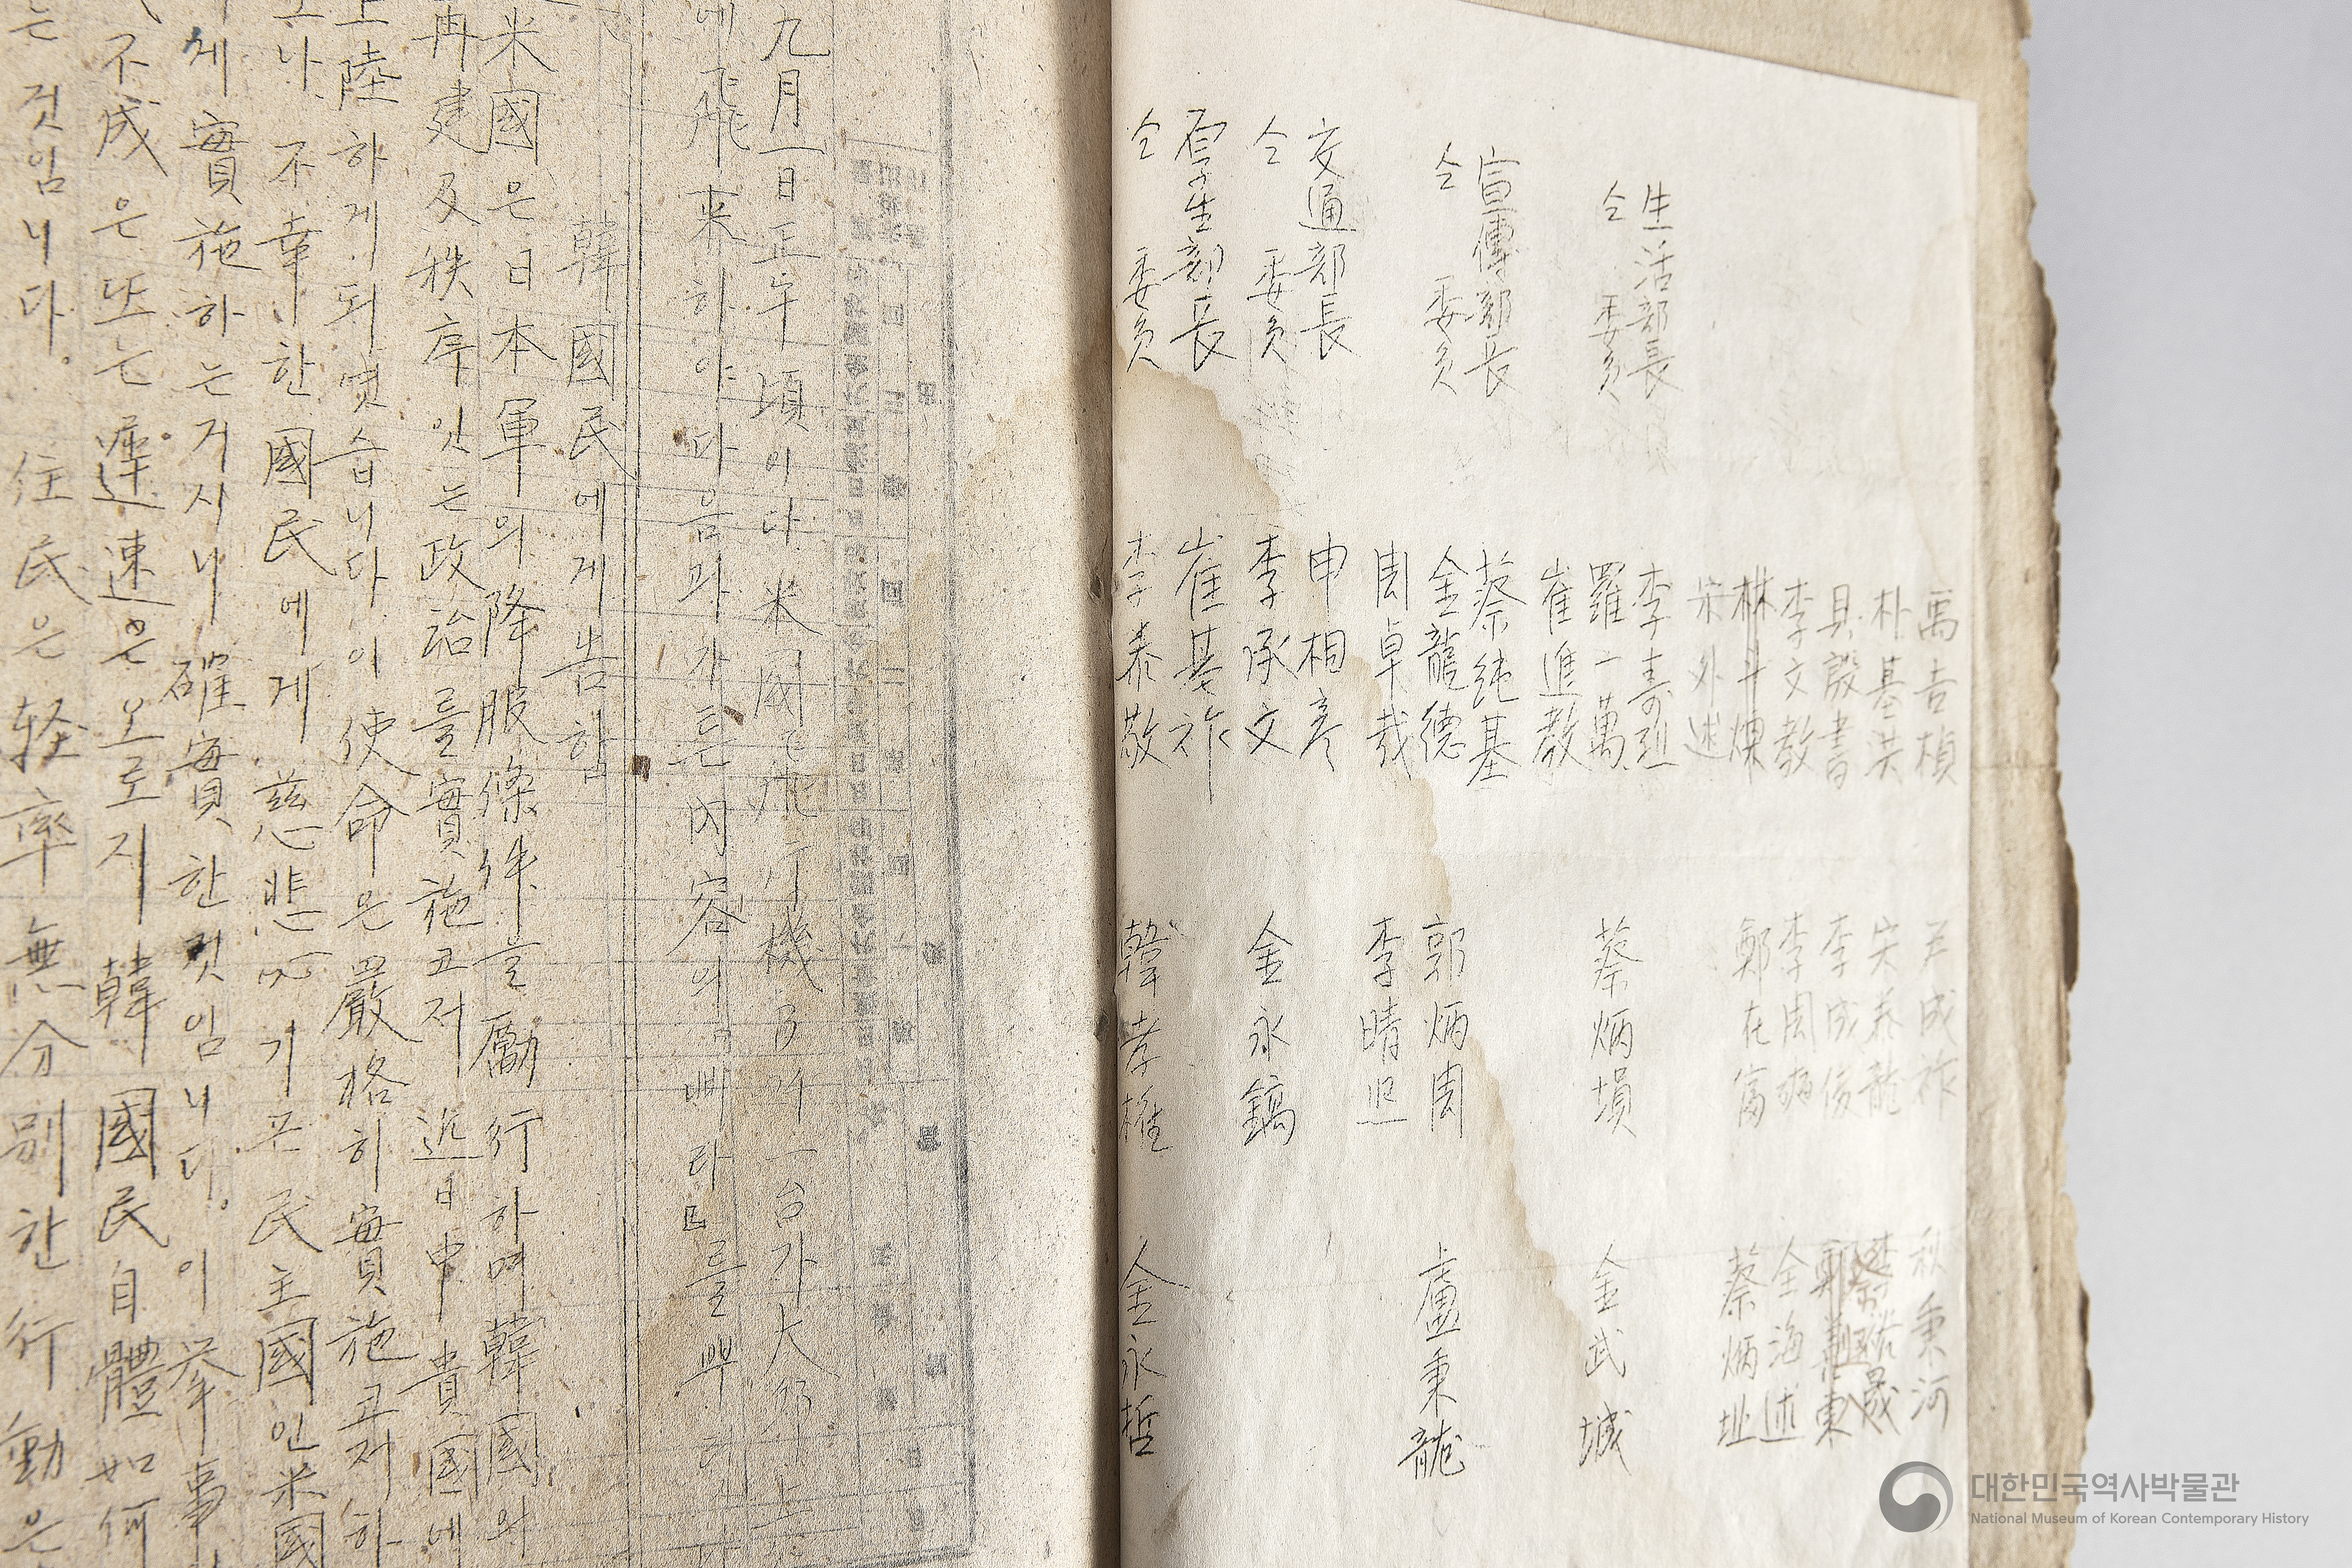 禹吉楨 尹成祚 秋秉河
朴基洪 宋泰龍
具殷書 李成俊
李文敎 李周 全海述
林斗煥 鄭在富 蔡炳址
宋外述
生活部長 李壽烈
仝 委員 羅一萬 蔡炳塤 金武城
崔進教
宣傳部長 蔡純基
仝 委員 金龍德 郭炳周 盧秉龍
周卓哉 李晴
交通部長 申相彦
仝 委員 李承文 金永鎬
厚生部長 崔基祚
仝 委員 李泰敬 韓孝 金永哲
九月一日正午頃이다 米國飛行機 一台가 大邱上
에 飛来하야 다음과 가튼 內容의 삐라를 뿌리
韓國民에게 告함
米國은 日本軍의 降服條件을 勵行하며 韓國의
再建及秩序잇는 政治를 實施코저 近日中 貴國에
上陸하게 되엿습니다 이 使命은 嚴格히 實施코저 하
나 不幸한 國民에게 慈悲心 기픈 民主國인 米國
에서 實施하는 거시니 確實한 것임니다. 이 挙事
不成은 또는 遲速은 오로지 韓國民自體如何
는 것임니다. 住民은 軽率無分別한 行動은
대한민국역사박물관
National Museum of Korean Contemporary History